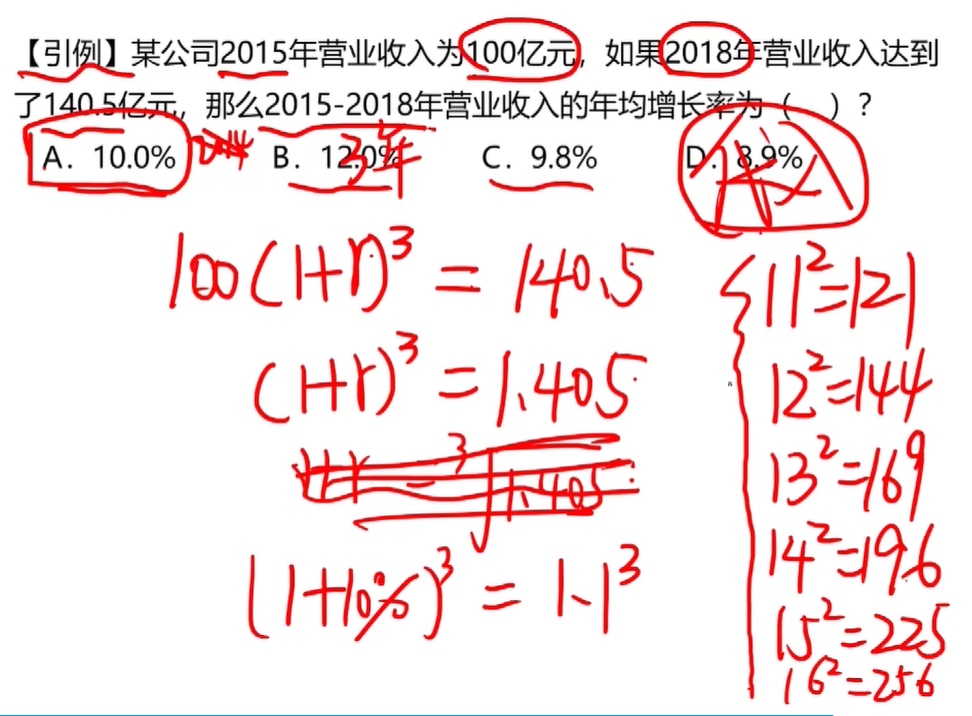 【引例】某公司2015年营业收入为100亿元，如果2018年营业收入达到
了140.5亿元，那么2015-2018年营业收入的年均增长率为（　）？
A．10.0%　B．12.0%　C．9.8%　D．8.9%
3年
代入
100(1+r)³ = 140.5
(1+r)³ = 1.405
1+r = ³√1.405
(1+10%)³ = 1.1³
11²=121
12²=144
13²=169
14²=196
15²=225
16²=256